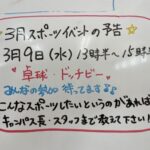 ☆3月スポーツイベントの予告☆
3月9日(水)13時半〜15時半
卓球・ドッヂビー
みんなの参加 待ってます♪♪
こんなスポーツしたいというのがあれば
キャンパス長・スタッフまで教えて下さい!